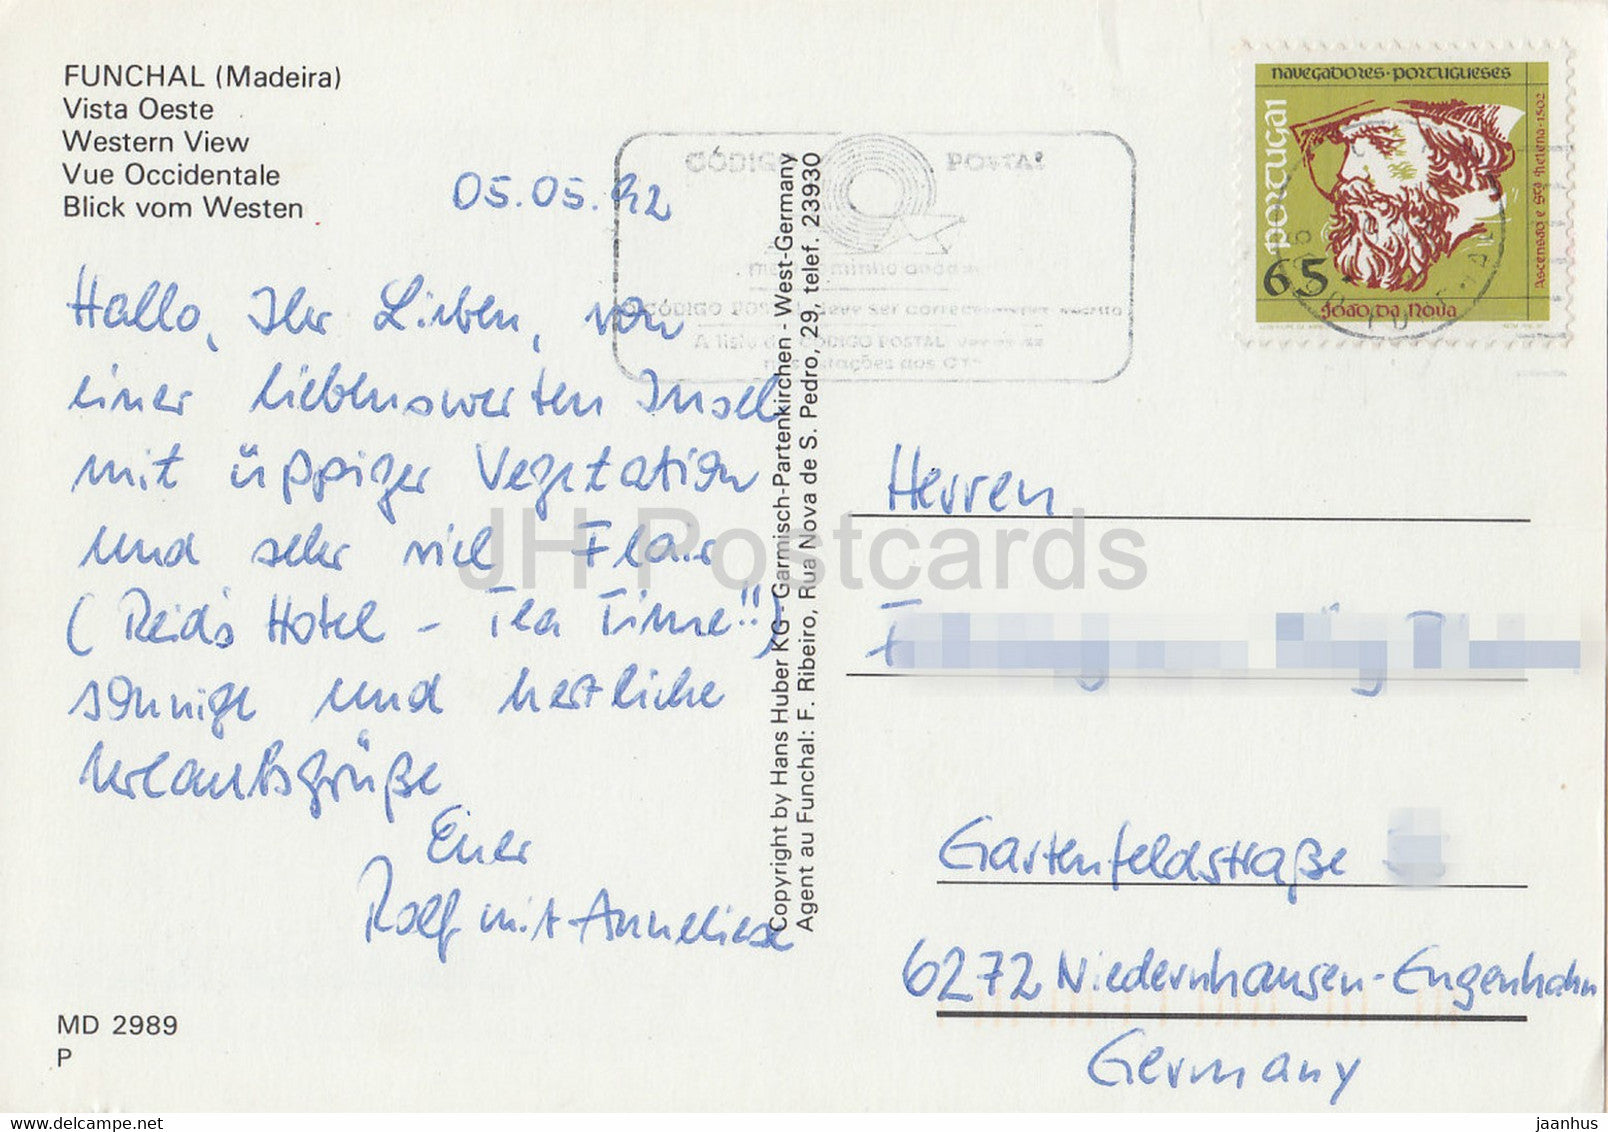 FUNCHAL (Madeira)
Vista Oeste
Western View
Vue Occidentale
Blick vom Westen
05.05.92
Hallo, Ihr Lieben, von
einer liebenswerten Insel
mit üppiger Vegetation
und sehr viel Flair
(Reid's Hotel - Tea Time!!)
sonnige und herzliche
Urlaubsgrüße
Euer
Rolf mit Anneliese
MD 2989
P
Copyright by Hans Huber KG - Garmisch-Partenkirchen - West-Germany
Agent au Funchal: F. Ribeiro, Rua Nova de S. Pedro, 29, telef. 23930
CÓDIGO POSTAL
CÓDIGO POSTAL deve ser
A lista CÓDIGO POSTAL
navegadores·portugueses
portugal
65
João da Nova
Ascensão e Stª Helena·1502
Herren
Gartenfeldstraße
6272 Niedernhausen-Engenhahn
Germany
JH Postcards
www.delcampe.net
jaanhus